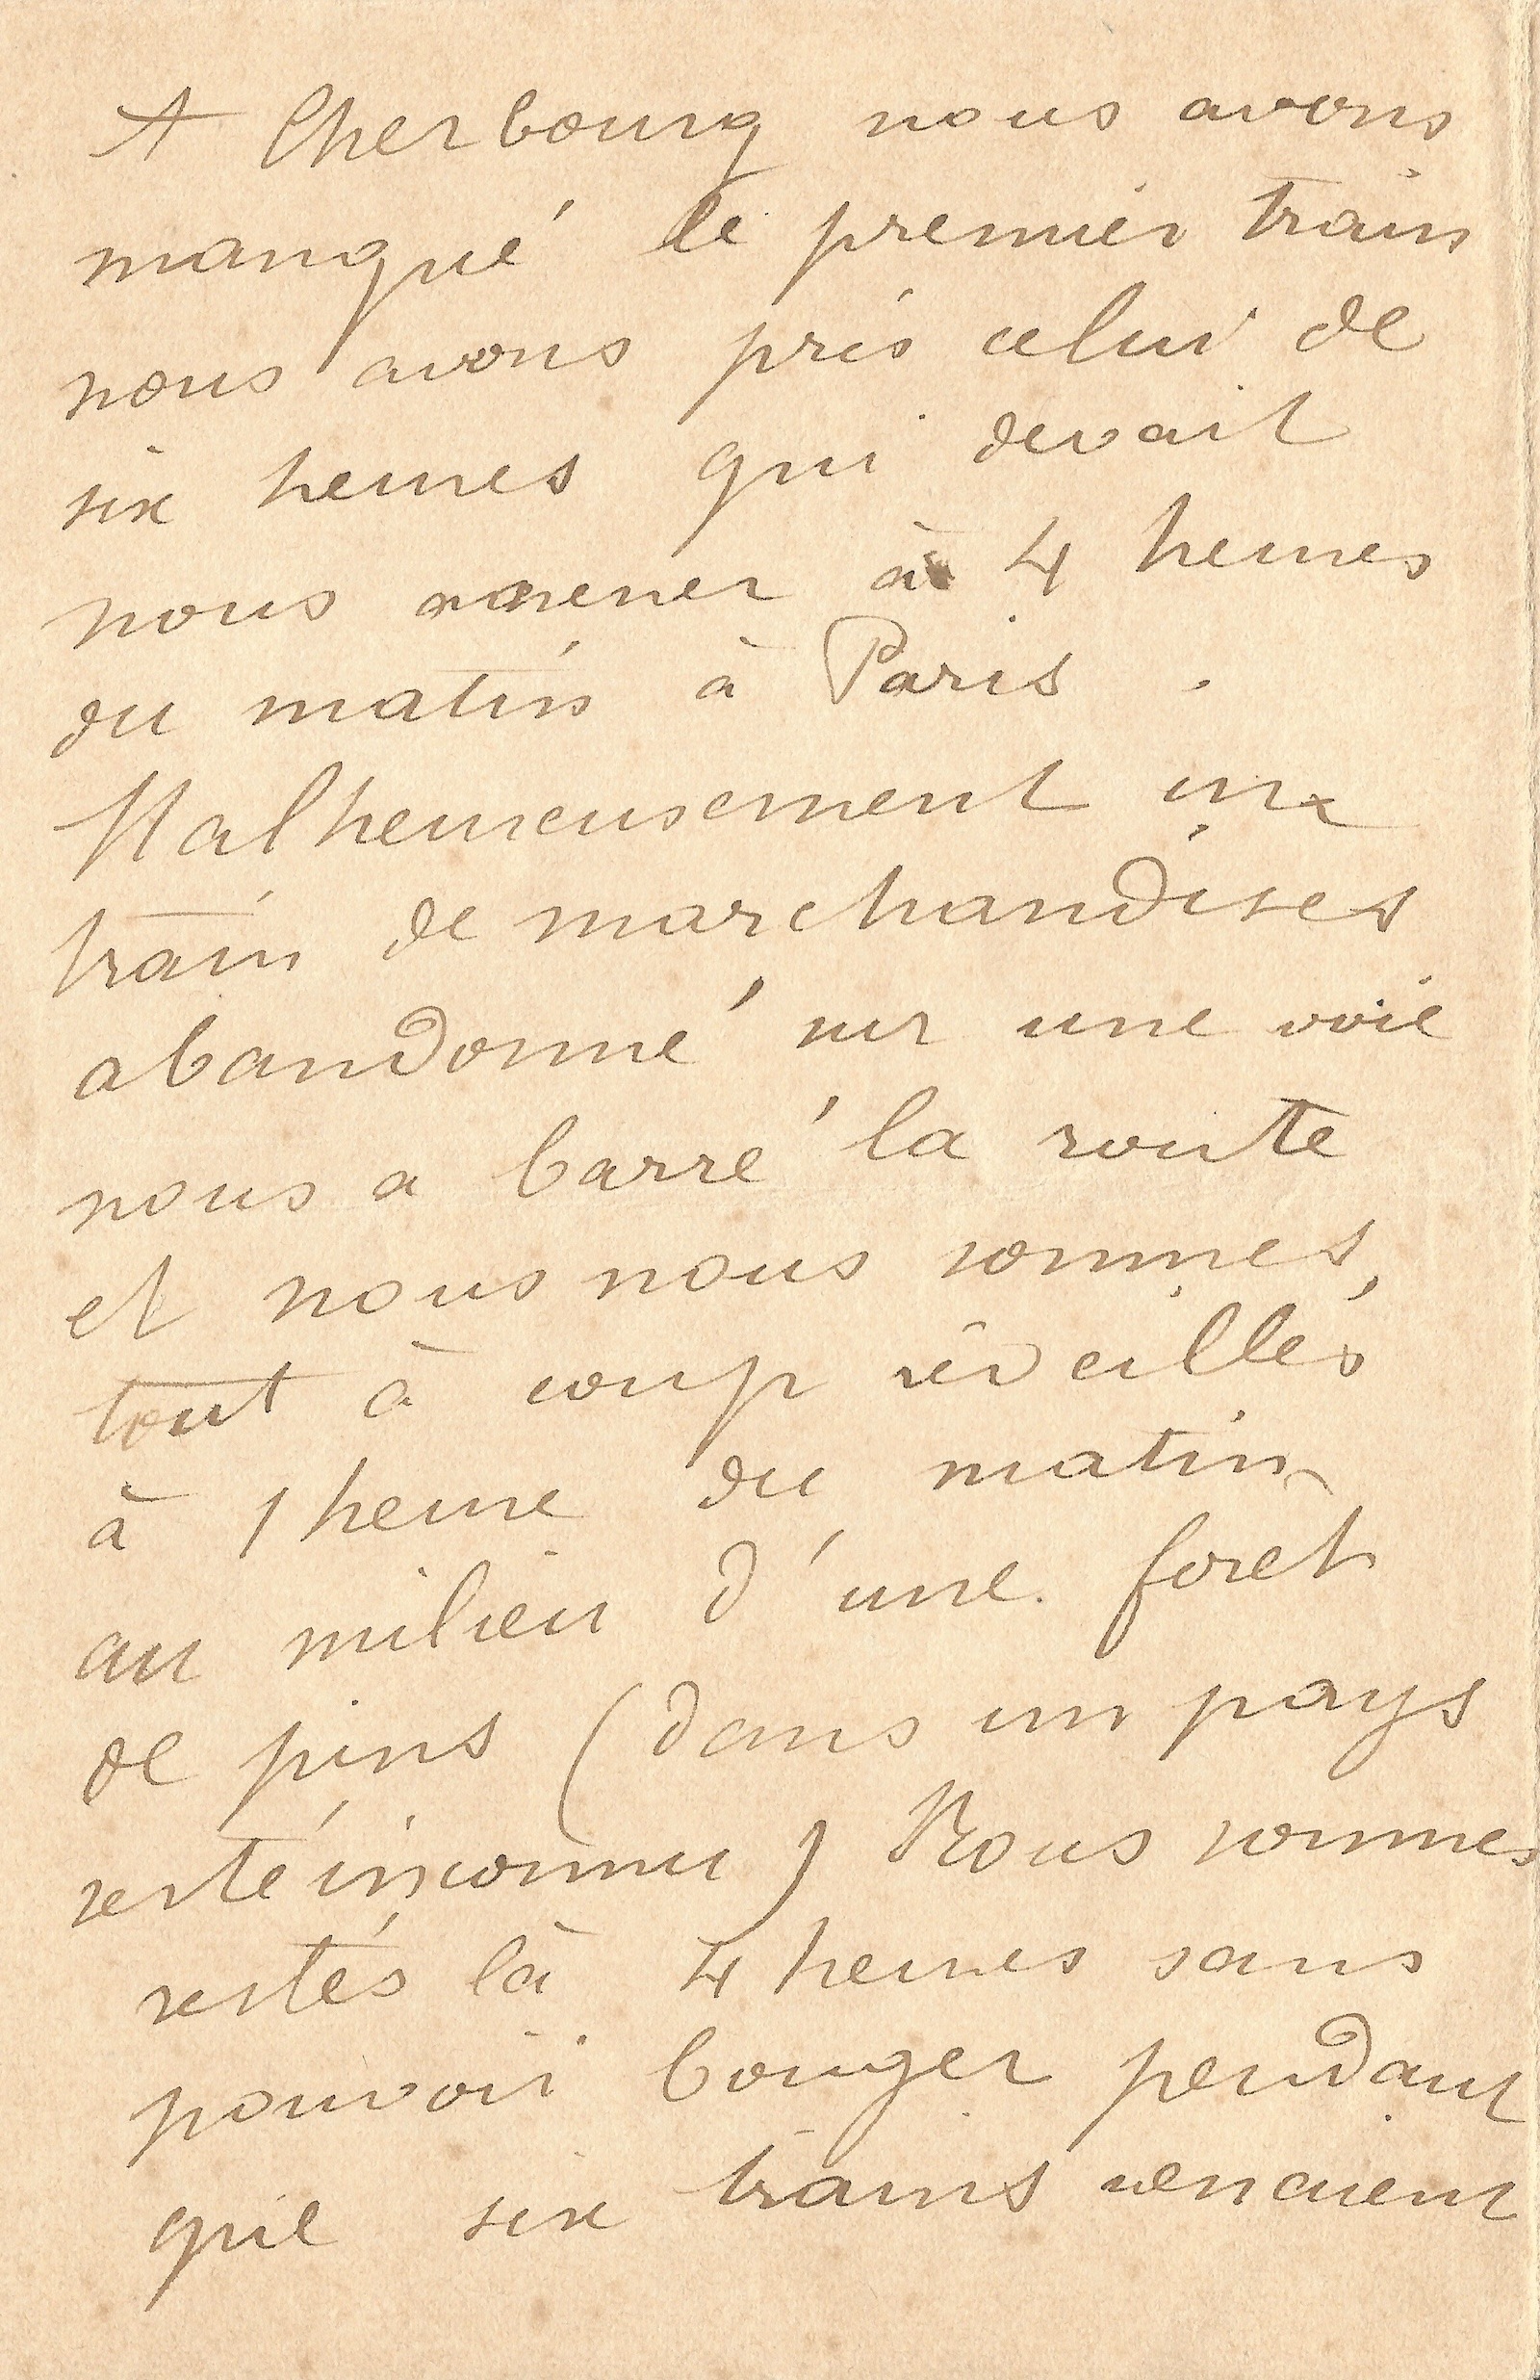 A Cherbourg nous avons
manqué le premier train
nous avons pris celui de
six heures qui devait
nous amener à 4 heures
du matin à Paris.
Malheureusement un
train de marchandises
abandonné sur une voie
nous a barré la route
et nous nous sommes,
tout à coup réveillés
à 1 heure du matin
au milieu d'une foret
de pins (dans un pays
resté inconnu) Nous sommes
restés là 4 heures sans
pouvoir bouger pendant
que six trains venaient